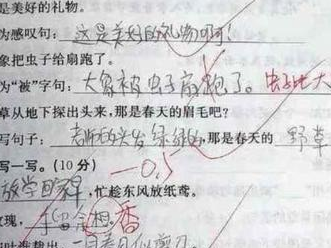 是美好的礼物。
为感叹句：这是美好的礼物啊！
象把虫子给扇跑了。
为“被”字句：大象被虫子扇跑了。虫子比大
草从地下探出头来，那是春天的眉毛吧？
写句子：老师的头发绿绿的，那是春天的野草
写一写。(10分) -0.5
放学回家，忙趁东风放纸鸢。
玫瑰，香